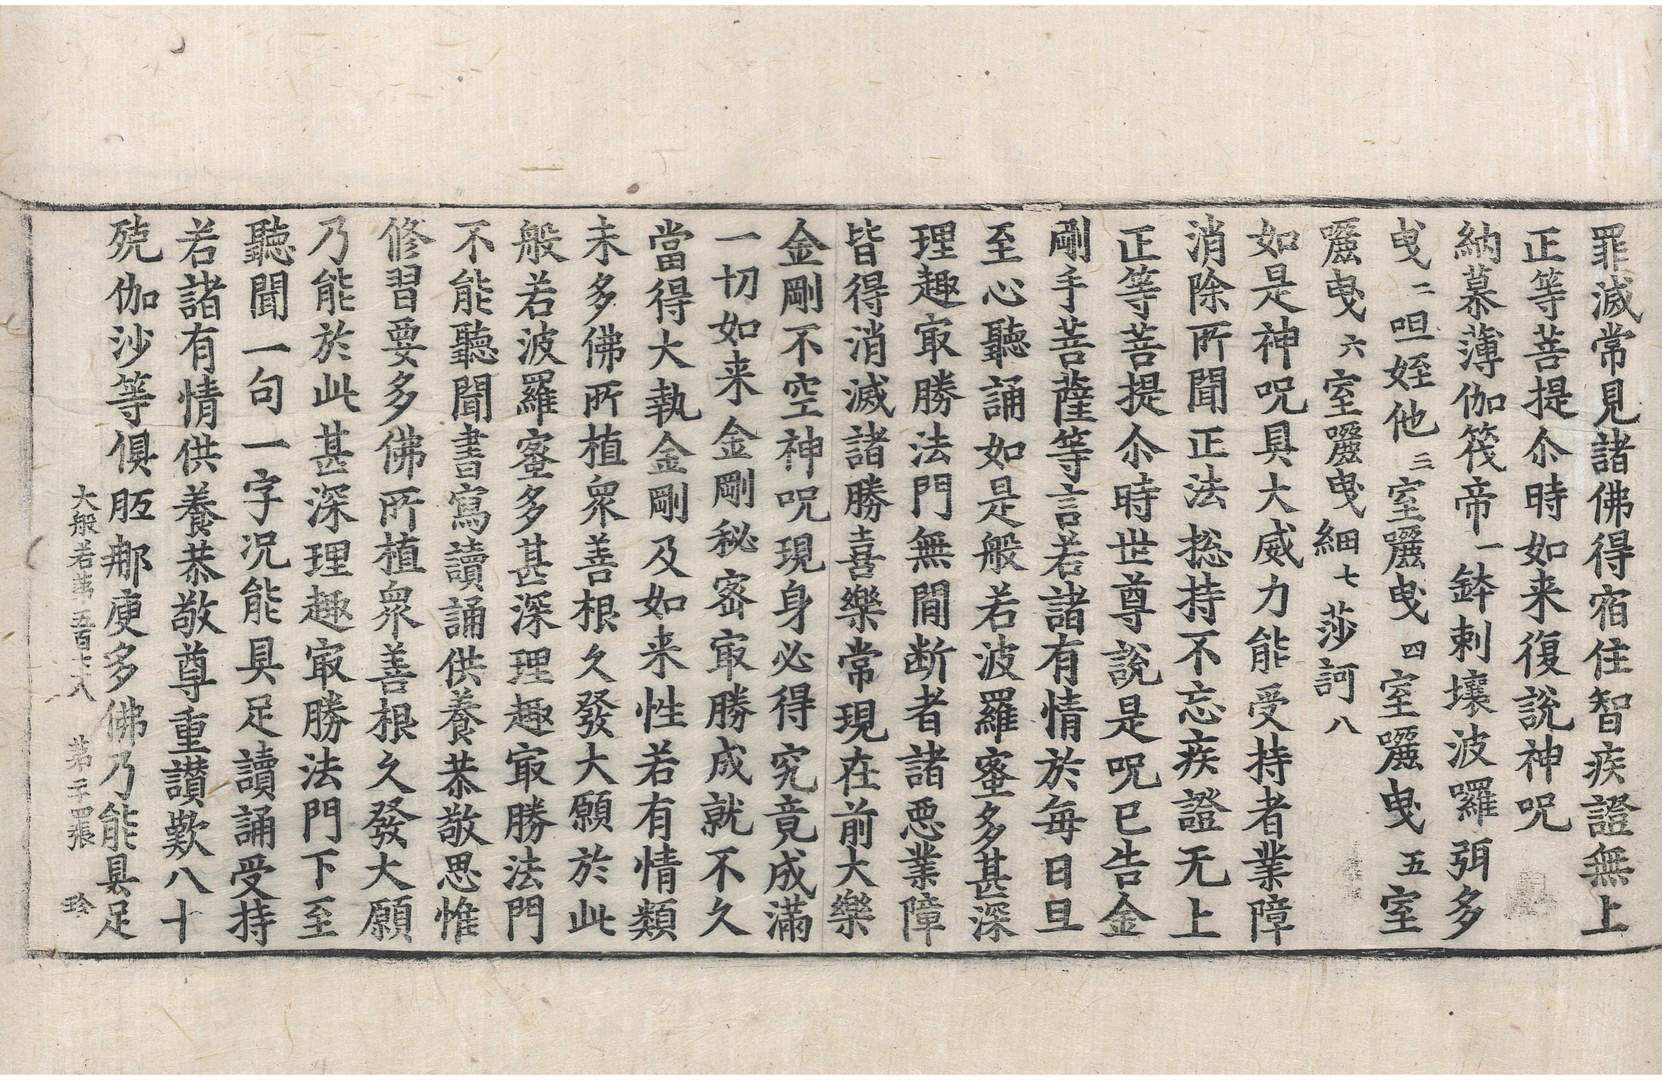 罪滅常見諸佛得宿住智疾證無上
正等菩提尒時如来復說神呪
納慕薄伽筏帝一鉢剌壤波囉弭多
曳二呾姪他三室㘑曳四室㘑曳五室
㘑曳六室㘑曳細七莎訶八
如是神呪具大威力能受持者業障
消除所聞正法捴持不忘疾證无上
正等菩提尒時世尊說是呪已告金
剛手菩薩等言若諸有情於每日旦
至心聽誦如是般若波羅蜜多甚深
理趣㝡勝法門無間断者諸惡業障
皆得消滅諸勝喜樂常現在前大樂
金剛不空神呪現身必得究竟成滿
一切如来金剛秘密㝡勝成就不久
當得大執金剛及如来性若有情類
未多佛所植衆善根久發大願於此
般若波羅蜜多甚深理趣㝡勝法門
不能聽聞書寫讀誦供養恭敬思惟
修習要多佛所植衆善根久發大願
乃能於此甚深理趣㝡勝法門下至
聽聞一句一字况能具足讀誦受持
若諸有情供養恭敬尊重讃歎八十
殑伽沙等俱胝那庾多佛乃能具足
大般若第五百七十八 第十四張 珍